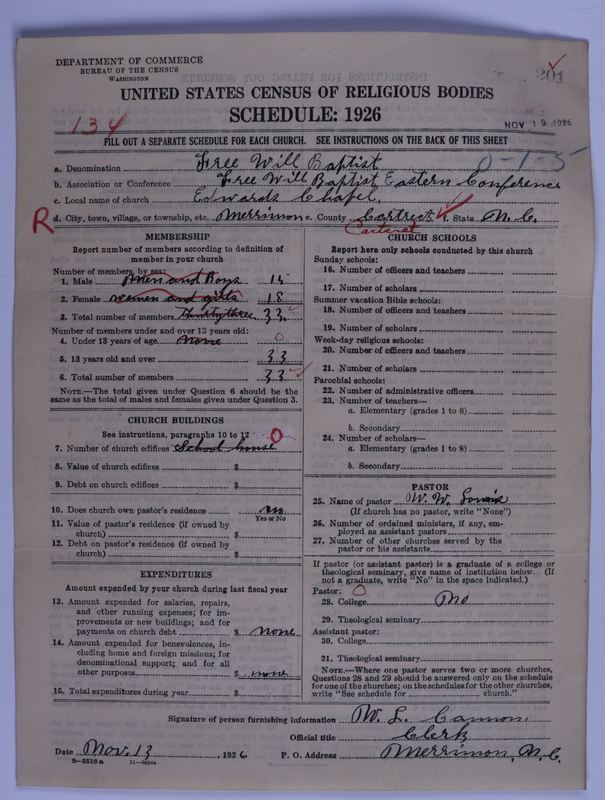 DEPARTMENT OF COMMERCE
BUREAU OF THE CENSUS
WASHINGTON
201
UNITED STATES CENSUS OF RELIGIOUS BODIES
SCHEDULE: 1926
134
NOV 19 1926
FILL OUT A SEPARATE SCHEDULE FOR EACH CHURCH. SEE INSTRUCTIONS ON THE BACK OF THIS SHEET
a. Denomination Free Will Baptist
0-1-5
b. Association or Conference Free Will Baptist Eastern Conference
c. Local name of church Edwards Chapel.
R d. City, town, village, or township, etc. Merrimon e. County Cartrect f. State N. C.
Carteret
MEMBERSHIP
Report number of members according to definition of member in your church
Number of members, by sex:
1. Male men and Boys 15
2. Female women and girls 18
3. Total number of members Thirty three 33
Number of members under and over 13 years old:
4. Under 13 years of age none 0
5. 13 years old and over 33
6. Total number of members 33
NOTE.—The total given under Question 6 should be the
same as the total of males and females given under Question 3.
CHURCH BUILDINGS
See instructions, paragraphs 10 to 12
0
7. Number of church edifices School house
8. Value of church edifices $
9. Debt on church edifices $
10. Does church own pastor's residence no
Yes or No
11. Value of pastor's residence (if owned by
church) $
12. Debt on pastor's residence (if owned by
church) $
EXPENDITURES
Amount expended by your church during last fiscal year
13. Amount expended for salaries, repairs,
and other running expenses; for im-
provements or new buildings; and for
payments on church debt $ none
14. Amount expended for benevolences, in-
cluding home and foreign missions; for
denominational support; and for all
other purposes $ none
15. Total expenditures during year $
CHURCH SCHOOLS
Report here only schools conducted by this church
Sunday schools:
16. Number of officers and teachers
17. Number of scholars
Summer vacation Bible schools:
18. Number of officers and teachers
19. Number of scholars
Week-day religious schools:
20. Number of officers and teachers
21. Number of scholars
Parochial schools:
22. Number of administrative officers
23. Number of teachers—
a. Elementary (grades 1 to 8)
b. Secondary
24. Number of scholars—
a. Elementary (grades 1 to 8)
b. Secondary
PASTOR
25. Name of pastor W. W.
(If church has no pastor, write "None")
26. Number of ordained ministers, if any, em-
ployed as assistant pastors
27. Number of other churches served by the
pastor or his assistants
If pastor (or assistant pastor) is a graduate of a college or
theological seminary, give name of institution below. (If
not a graduate, write "No" in the space indicated.)
Pastor: 0
28. College no
29. Theological seminary
Assistant pastor:
30. College
31. Theological seminary
NOTE.—Where one pastor serves two or more churches,
Questions 28 and 29 should be answered only on the schedule
for one of the churches; on the schedules for the other churches,
write "See schedule for church."
Signature of person furnishing information W. L. Cannon.
Official title Clerk
Date Nov. 13, 1926 P. O. Address Merrimon, N. C.
8-5518 a